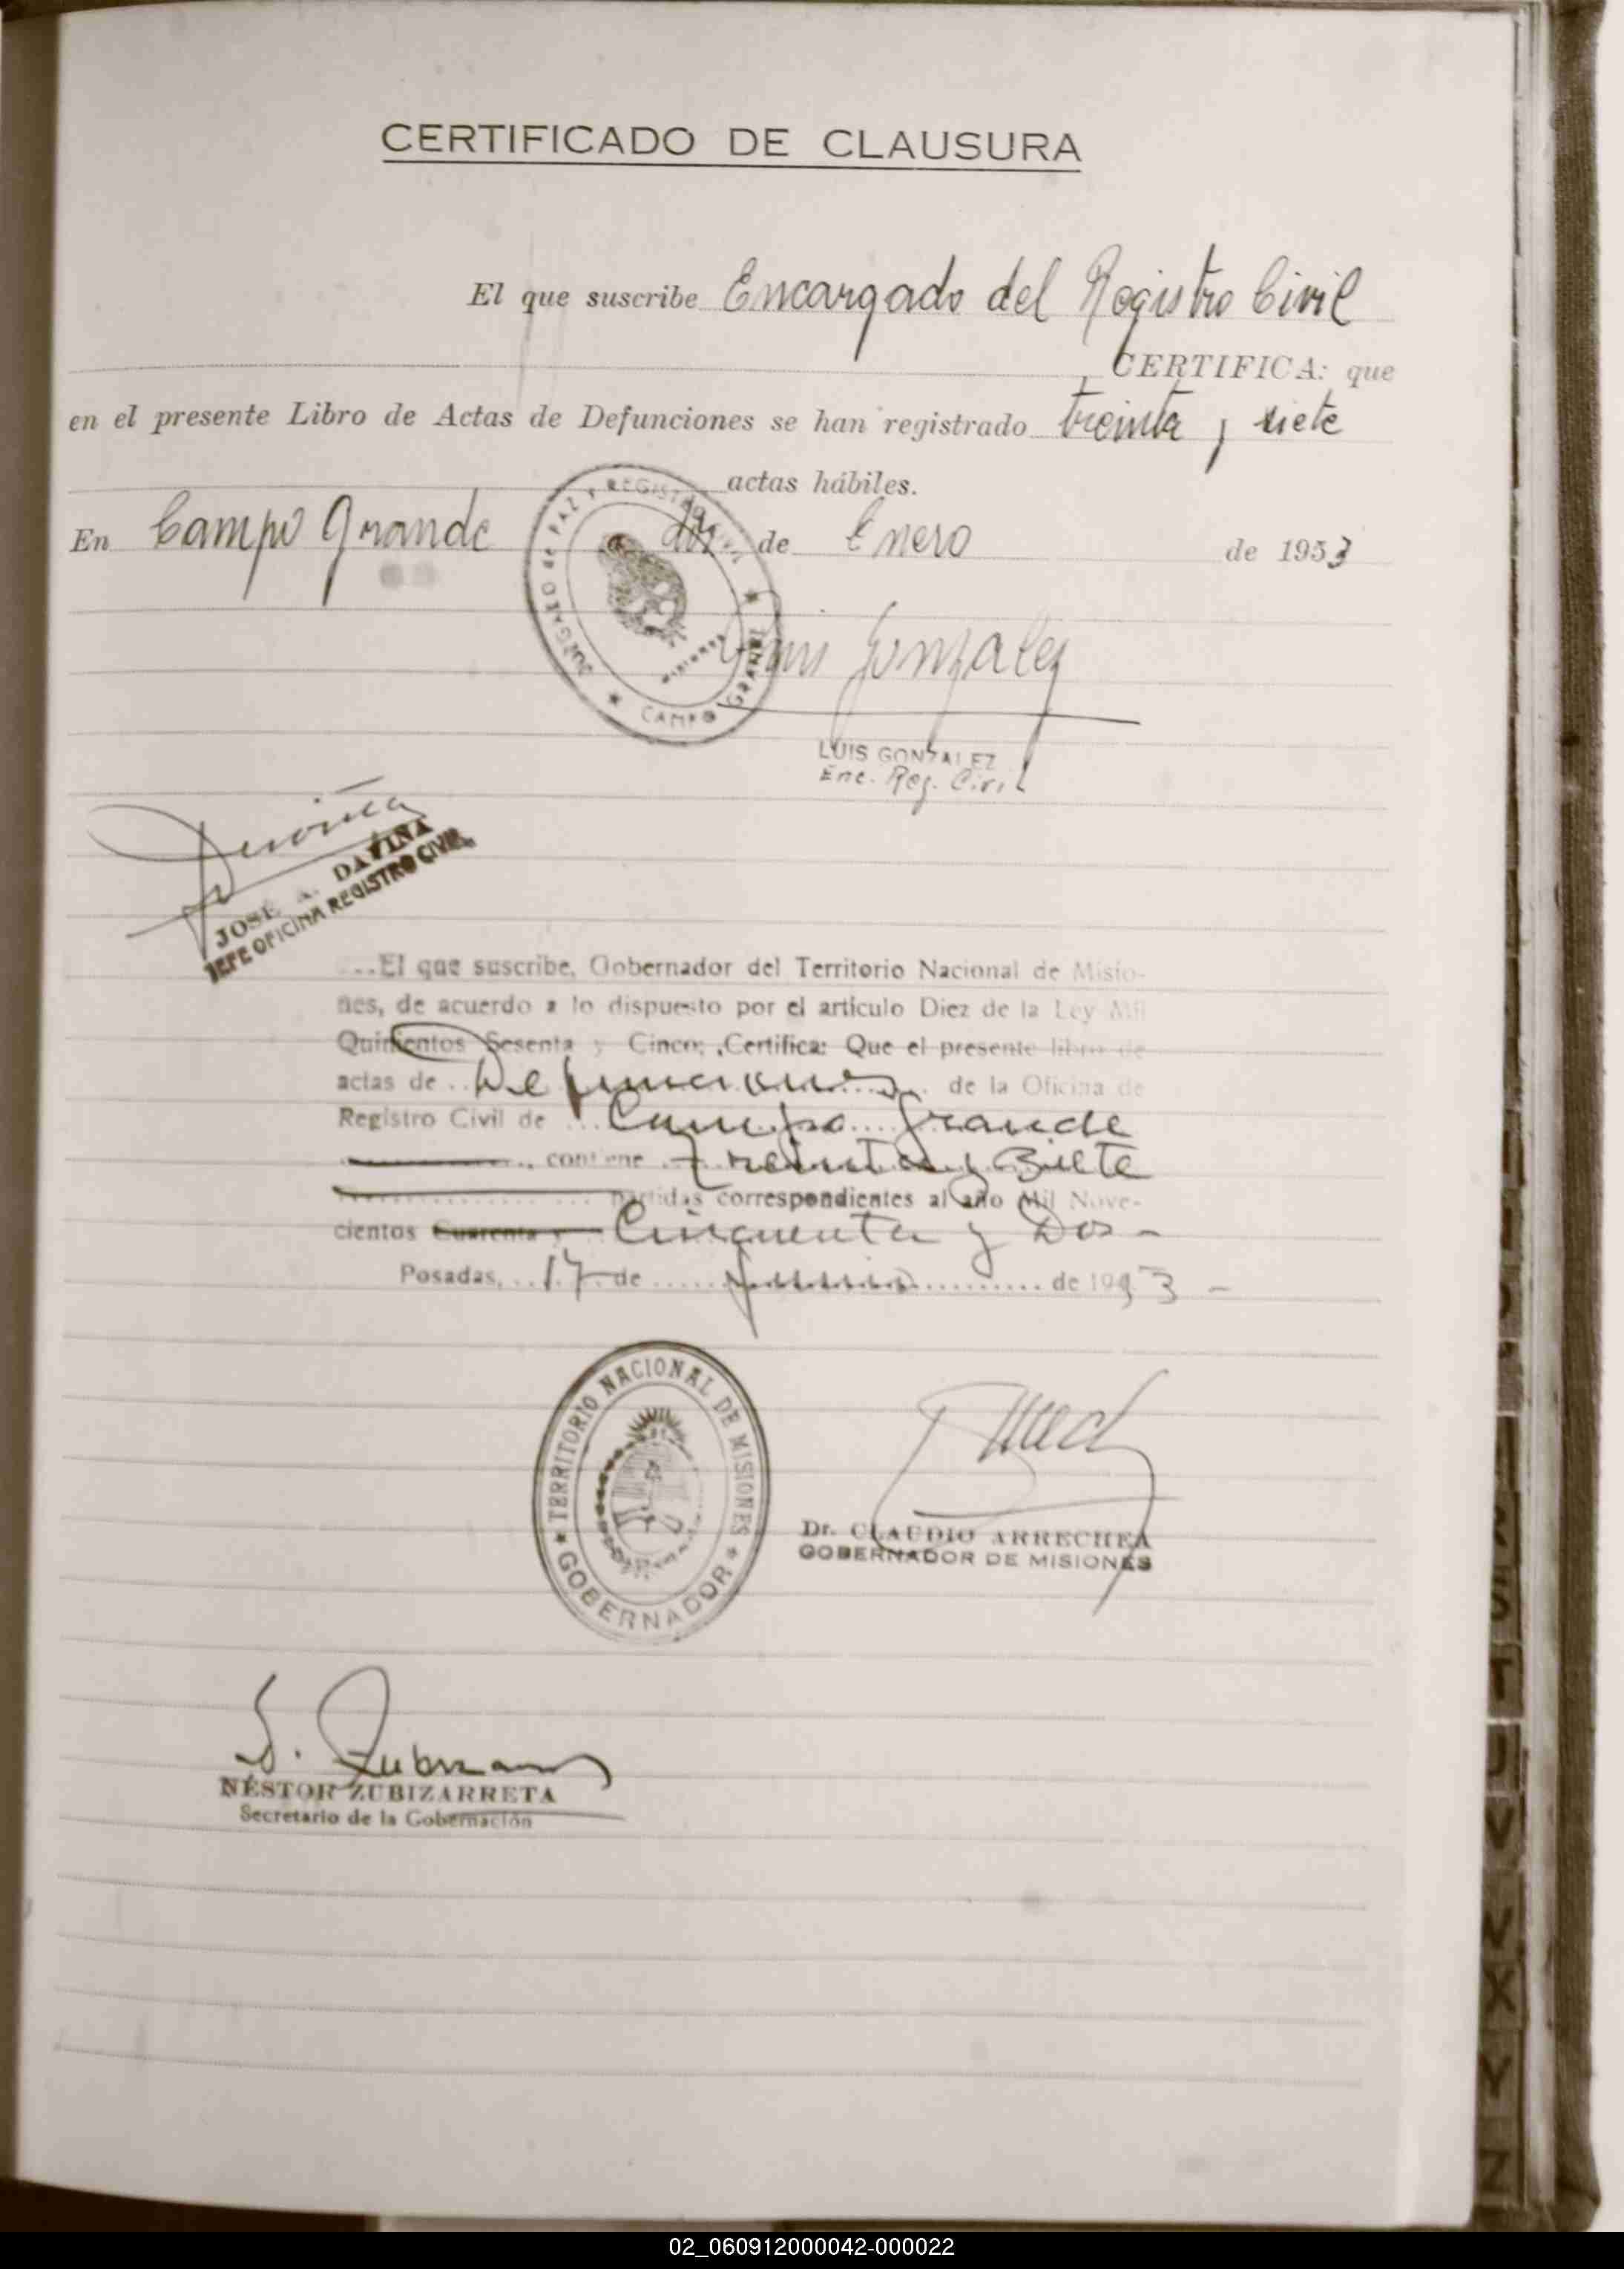 CERTIFICADO DE CLAUSURA
El que suscribe Encargado del Registro Civil
CERTIFICA: que
en el presente Libro de Actas de Defunciones se han registrado treinta y siete
actas hábiles.
En Campo Grande de Enero de 1953
JUZGADO de PAZ Y REGISTRO CIVIL
MISIONES
CAMPO GRANDE
Luis Gonzalez
LUIS GONZALEZ
Enc. Reg. Civil
JOSE A. DAVIÑA
JEFE OFICINA REGISTRO CIVIL
El que suscribe, Gobernador del Territorio Nacional de Misio-
nes, de acuerdo a lo dispuesto por el artículo Diez de la Ley Mil
Quinientos Sesenta y Cinco; Certifica: Que el presente libro de
actas de Defunciones de la Oficina de
Registro Civil de Campo Grande
contiene Treinta y Siete
partidas correspondientes al año Mil Nove-
cientos Cuarenta y Cincuenta y Dos -
Posadas, 17 de de 1953 -
TERRITORIO NACIONAL DE MISIONES
GOBERNADOR
Dr. CLAUDIO ARRECHEA
GOBERNADOR DE MISIONES
NÉSTOR ZUBIZARRETA
Secretario de la Gobernación
S
T
U
V
W
X
Y
Z
02_060912000042-000022